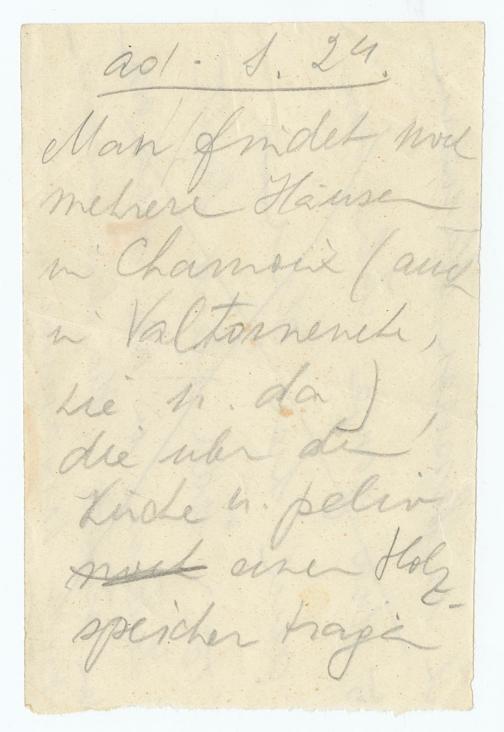 ad. S. 24.
Man findet noch
mehrere Häuser
in Chamoix (auch
in Valtornenche,
hie u. da)
die über der
Küche u. pelio
noch einen Holz-
speicher tragen